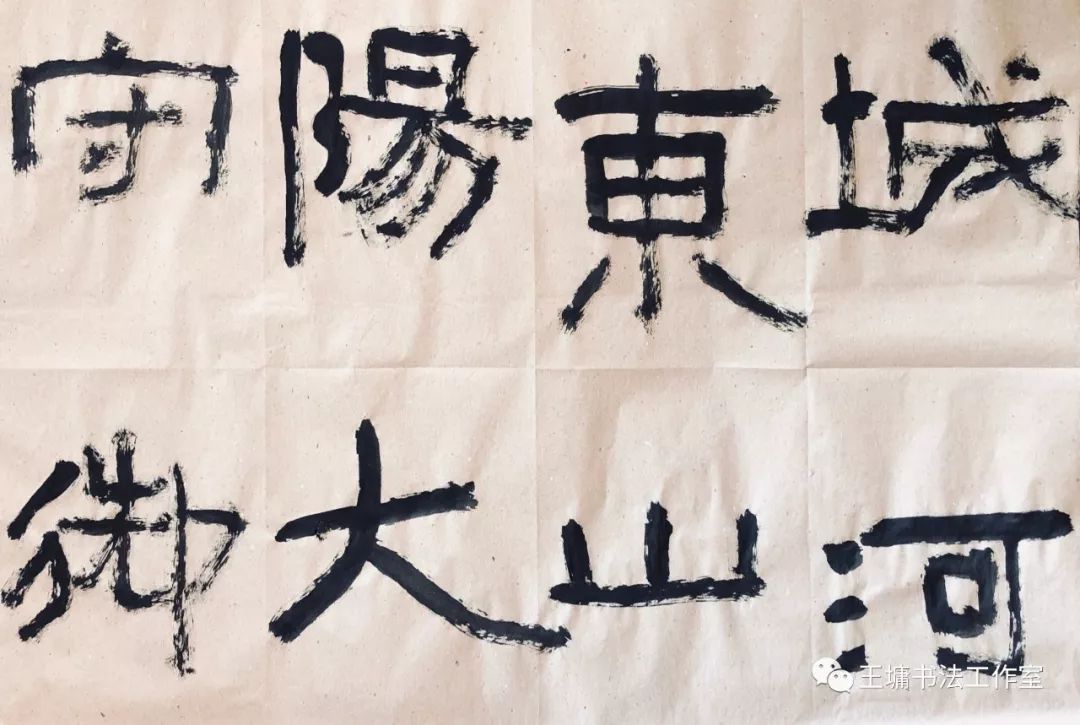 守陽東城
御大山河
王墉书法工作室